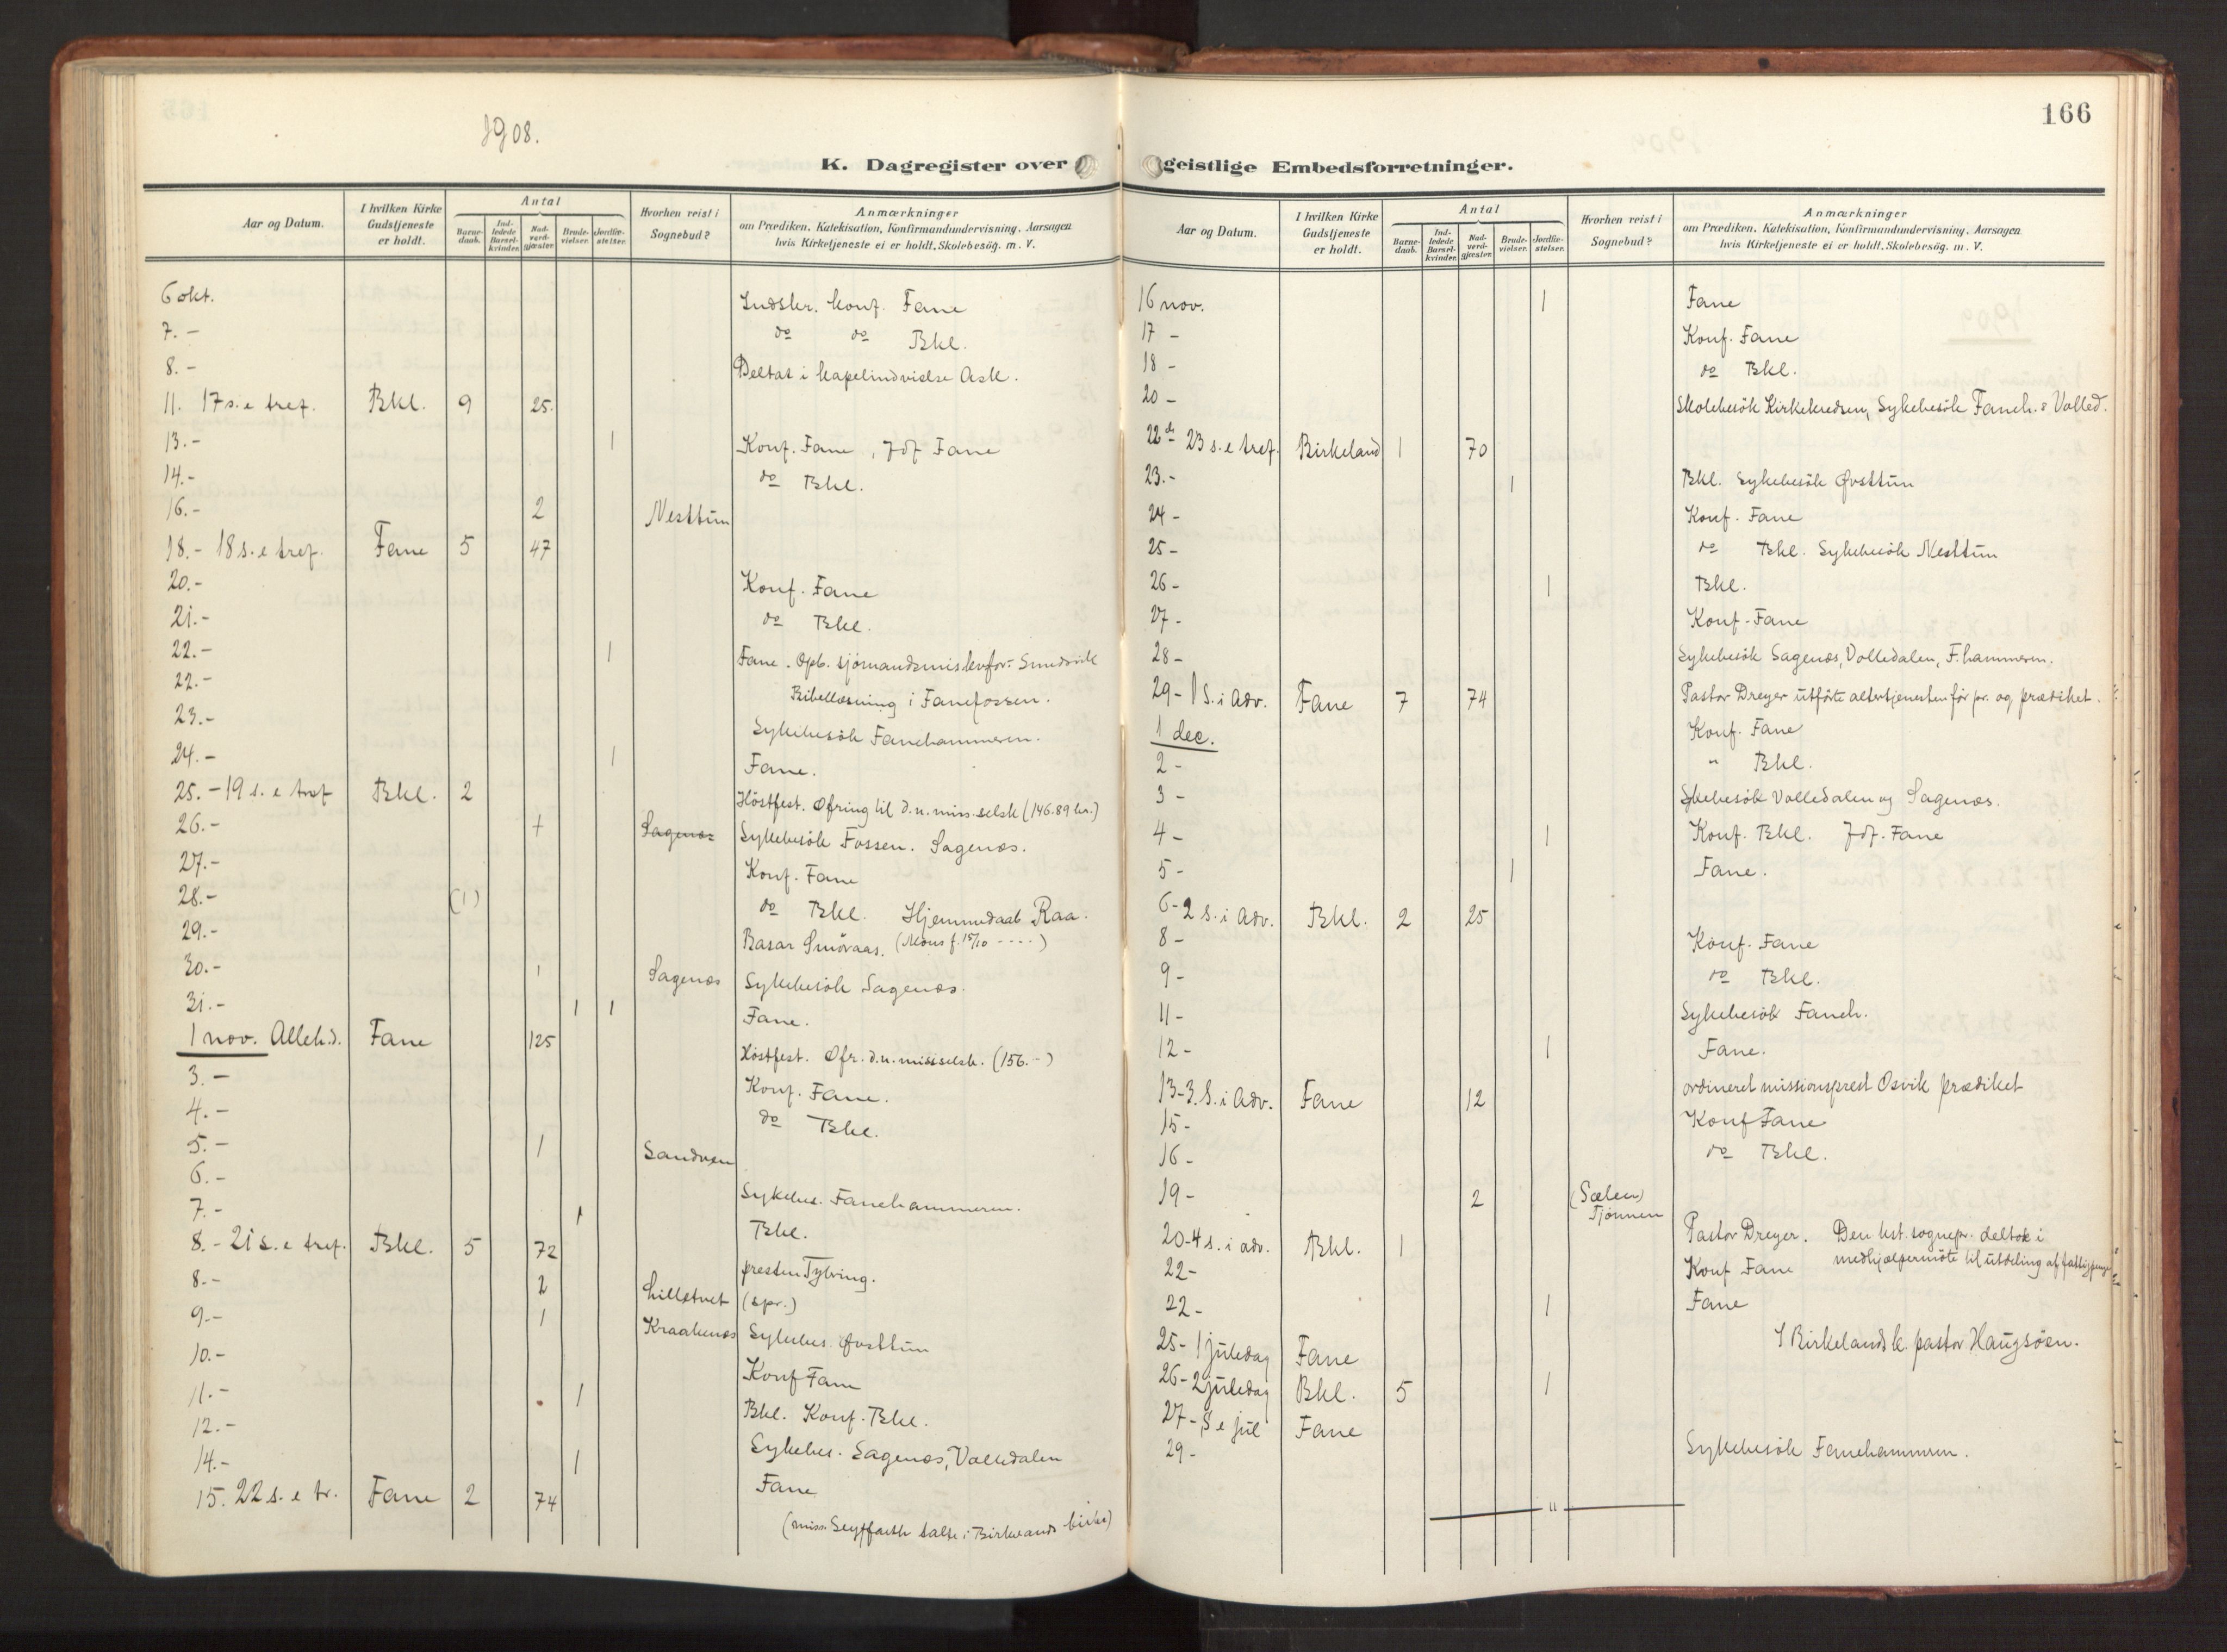 1908.
K. Dagregister over
Aar og Datum. I hvilken Kirke Gudstjeneste er holdt. Antal Barne-daab. Ind-ledede Barsel-kvinder. Nad-verd-gjæster. Brude-vielser. Jordfæ-stelser. Hvorhen reist i Sognebud? Anmærkninger om Prædiken, Katekisation, Konfirmandundervisning, Aarsagen hvis Kirketjeneste ei er holdt, Skolebesög. m. V.
6 okt. Indskr. konf. Fane
7. - do do Bkl.
8. - Deltat i kapelindvielse Ask.
11. 17 s. e tref. Bkl. 9 25.
13. - 1 Konf. Fane, Jdf Fane
14. - do Bkl.
16. - 2 Nesttun
18. - 18 s. e tref. Fane 5 47
20. - Konf. Fane
21. - do Bkl.
22. - 1 Fane. Opb. sjömandsmis kvfor. Smedvik
22. - Bibellæsning i Fanefossen.
23. - Sykebesök Fanehammeren.
24. - 1 Fane.
25. - 19 s. e tref Bkl. 2 Höstfest. Ofring til d. n. miss. selsk (146.89 kr.)
26. - Sagenæs Sykebesök Fossen. Sagenæs.
27. - Konf. Fane
28. - (1) do Bkl. Hjemmedaab Raa.
29. - Basar Smöraas. (Mons f. 15/10 ----)
30. - 1 Sagenæs Sykebesök Sagenæs.
31. - 1 1 Fane.
1 nov. Alleh.d. Fane 125 Höstfest. Ofr. d. n. misselsk. (156. -)
3. - Konf. Fane.
4. - do Bkl.
5. - 1 Sandven
6. - Sykebes. Fanehammeren.
7. - 1 Bkl.
8. - 21 s. e tref. Bkl. 5 72 presten Tylving.
8. - 2 Lilletvet (spr.)
9. - 1 Kraakenæs Sykebes. Øvsttun
10. - Konf Fane
11. - 1 Bkl. Konf. Bkl.
12. - Sykebes. Sagenæs, Valledalen
14. - 1 Fane
15. 22 s. e tr. Fane 2 74 (miss. Seyffarth talte i Birkelands kirke)
166
geistlige Embedsforretninger.
Aar og Datum. I hvilken Kirke Gudstjeneste er holdt. Antal Barne-daab. Ind-ledede Barsel-kvinder. Nad-verd-gjæster. Brude-vielser. Jordfæ-stelser. Hvorhen reist i Sognebud? Anmærkninger om Prædiken, Katekisation, Konfirmandundervisning, Aarsagen hvis Kirketjeneste ei er holdt, Skolebesög. m. V.
16 nov. 1 Fane
17 - Konf. Fane
18 - do Bkl.
20 - Skolebesök Kirkekredsen, Sykebesök Faneh. & Valled.
22de 23 s. e tref. Birkeland 1 70
23. - 1 Bkl. Sykebesök Øvsttun
24 - Konf. Fane
25 - do Bkl. Sykebesök Nesttun
26 - 1 Bkl.
27 - Konf. Fane
28 - Sykebesök Sagenæs, Valledalen, F.hammeren.
29 - 1 S. i Adv. Fane 7 74 Pastor Dreyer utförte altertjenesten för pr. og prædiket.
1 dec. Konf. Fane
2 - " Bkl.
3 - Sykebesök Valledalen og Sagenæs.
4 - 1 Konf. Bkl. Jdf. Fane
5 - 1 Fane.
6 - 2 S. i Adv. Bkl. 2 25
8 - Konf. Fane
9 - do Bkl.
11 - Sykebesök Faneh.
12 - 1 Fane.
13 - 3. S. i Adv. Fane 12 ordineret missionsprest Osvik prædiket
15 - Konf Fane
16 - do Bkl.
19 - 2 (Sælen) Tjönnen
20 - 4 s. i adv. Bkl. 1 Pastor Dreyer. Den kst. sognepr. deltok i
medhjælpermöte til utdeling af fattigpenge
22 - Konf Fane
22 - 1 Fane
25 - 1 juledag Fane I Birkelands k. pastor Haugsöen.
26 - 2 juledag Bkl. 5 1
27 - S e jul Fane
29 - Sykebesök Fanehammeren.